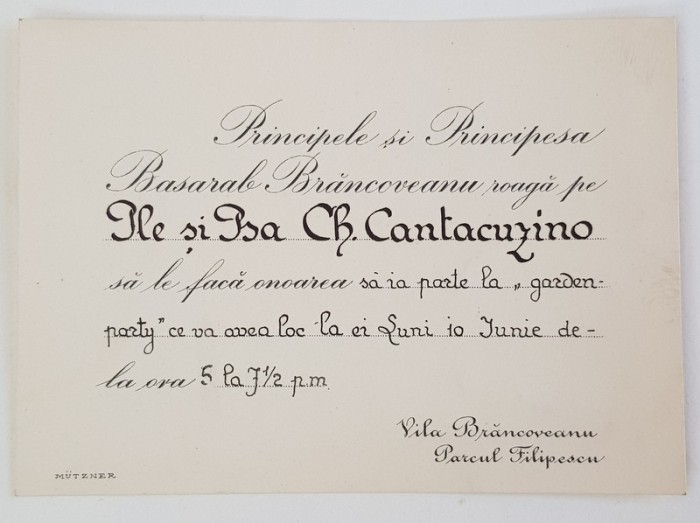 Principele și Principesa
Basarab Brâncoveanu roagă pe
Ple și Psa Ch. Cantacuzino
să le facă onoarea să ia parte la „garden-
party" ce va avea loc la ei Luni 10 Junie de-
la ora 5 la 7½ p.m
Vila Brâncoveanu
Parcul Filipescu
MÜTZNER